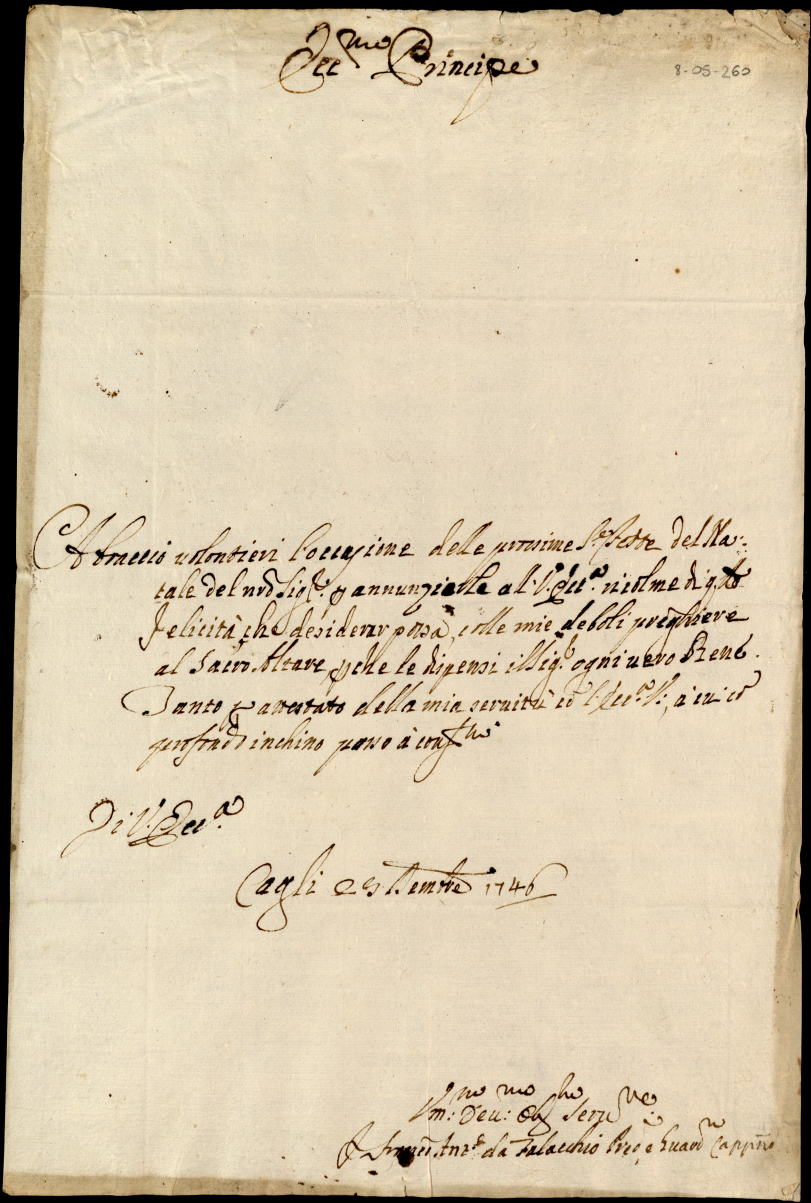 Ecc.mo Principe
8-05-260
Abbraccio volontieri l'occasione delle prossime S.te Feste del Na:
tale del nrõ Sig.re p annunziarle all' V. Ecc.a ricolme di q.to
felicità che desiderar possa, colle mie deboli preghiere
al Sacro Altare, pche le dipensi il Sig.re ogni vero Bene.
Tanto p attestato della mia servitù cõ l'Ecc.a V:, à cui cõ
profondo inchino passo à
Di V. Ecc.a
Cagli 1746
Vm:mo Deu:mo Obl.mo Seru.re
F. Franc.o Ant.o da Falacchio e Guard.n Cappno